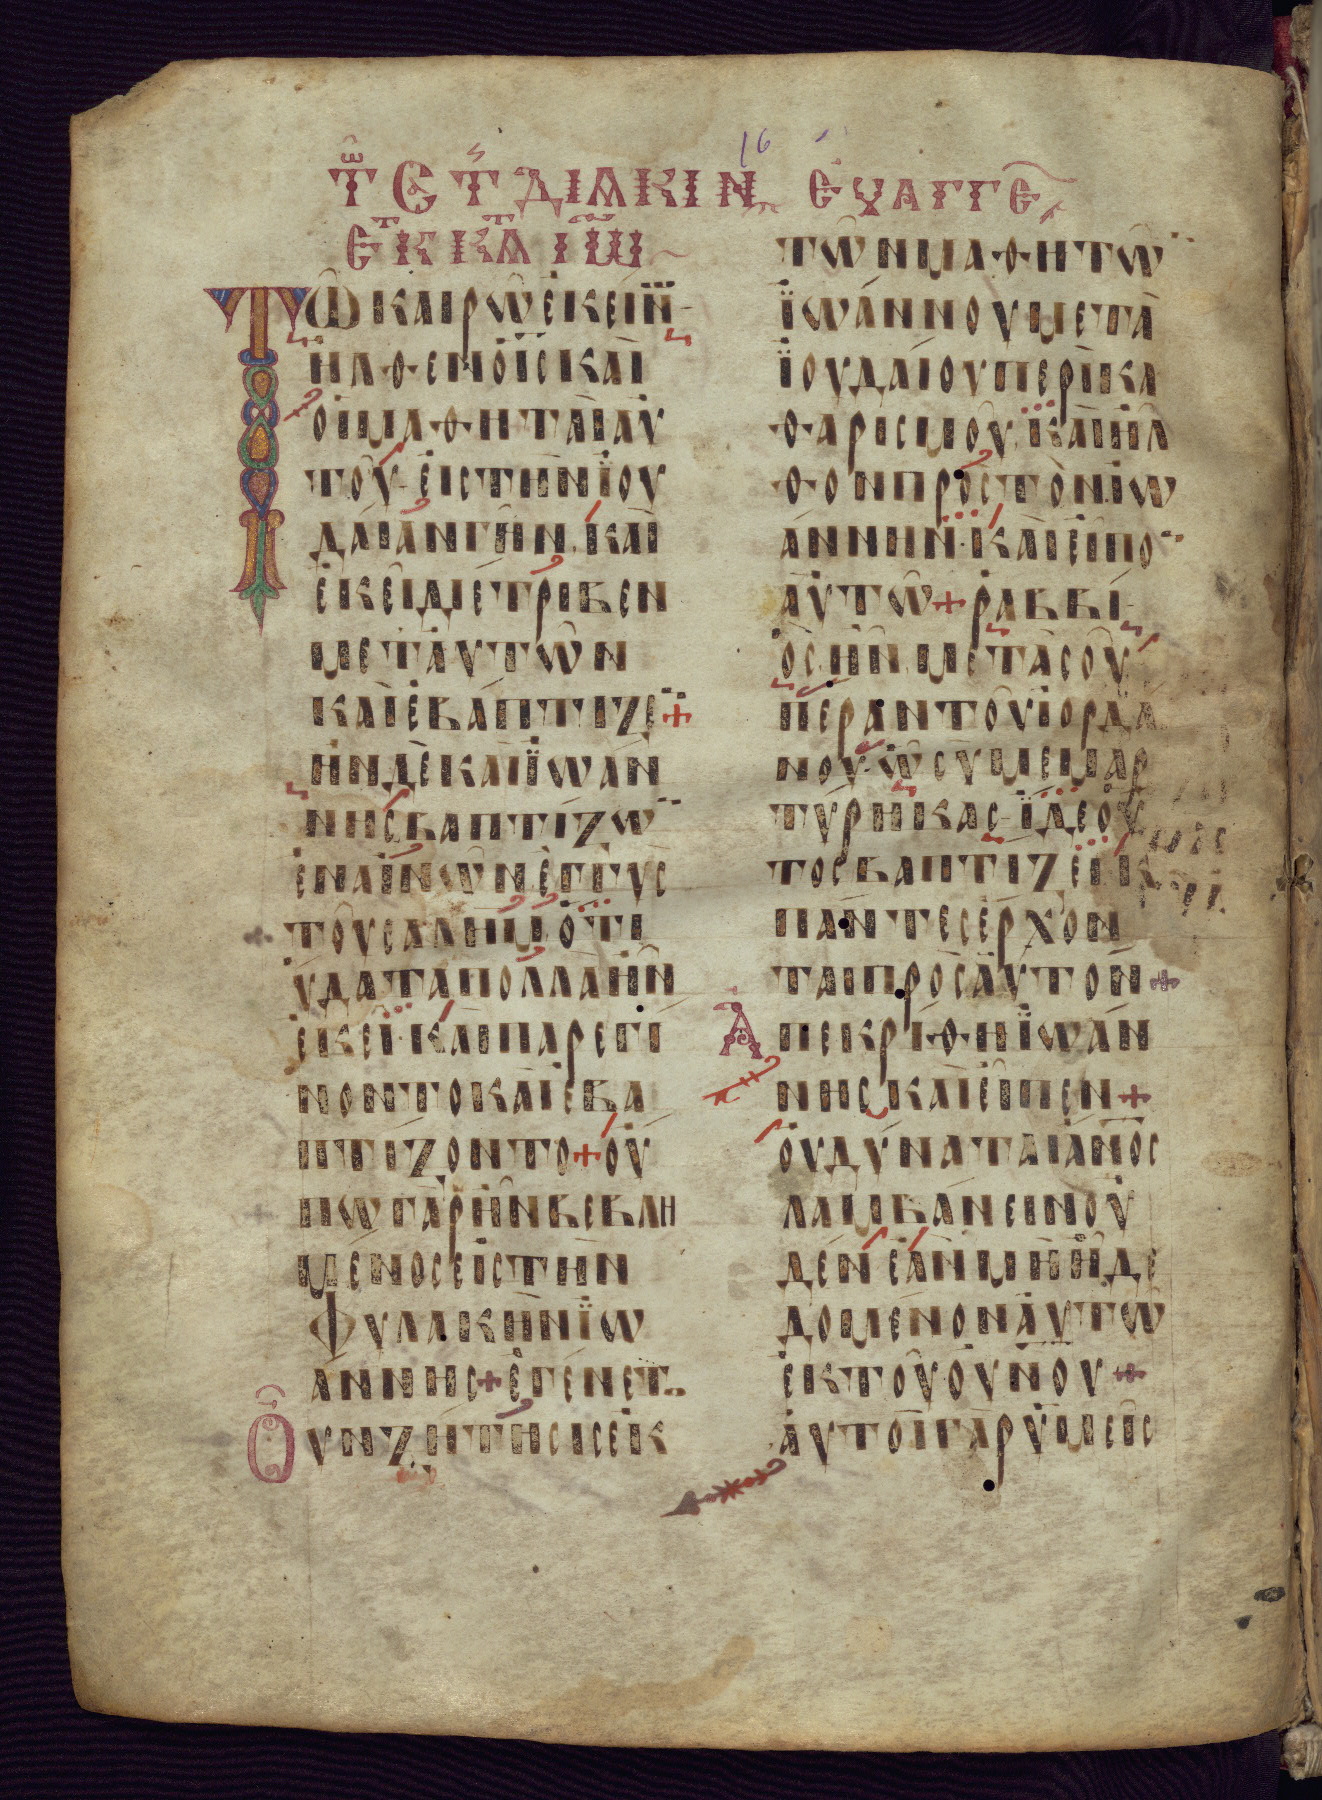 16
Τῶ Σ Τ ΔΙΑΚΙΝ ΕΥΑΓΓΕ
ΕΚ Κ ΙΩ
ΤῶΚΑΙΡῶἘΚΕΙΝ
ἨΛΘΕΝὉΙΣΚΑῚ
ΟἹΜΑΘΗΤΑῚΑΥ
ΤΟΥ͂·ἘΙΣΤῊΝΪΟΥ
ΔΆΙΑΝΓΗΝ·ΚΑῚ
ἘΚΕΙΔΙΈΤΡΙΒΕΝ
ΜΕΤΑΥΤΩ͂Ν
ΚΑῚΕΒΆΠΤΙΖΕ+
ἮΝΔῈΚΑῚΪΩΆΝ
ΝΗΣΒΑΠΤΊΖΩ
ἘΝΑΙΝῺΝἘΓΓῪΣ
ΤΟΥ͂ΣΑΛΗΜ·ὍΤΙ
ὝΔΑΤΑΠΟΛΛᾺἮΝ
ἘΚΕΪ·ΚΑῚΠΑΡΕΓΊ
ΝΟΝΤΟΚΑῚΕΒΑ
ΠΤΊΖΟΝΤΟ+ΟὝ
ΠΩΓᾺΡἮΝΒΕΒΛΗ
ΜΈΝΟΣΕἸΣΤῊΝ
ΦΥΛΑΚῊΝΪΩ
ΆΝΝΗΣ+ἘΓΈΝΕΤ
ΟΥΝΖΉΤΗΣΙΣἘΚ
ΤΩ͂ΝΜΑΘΗΤΩ͂
ΪΩΆΝΝΟΥΜΕΤᾺ
ΪΟΥΔΑΊΟΥΠΕΡῚΚΑ
ΘΑΡΙΣΜΟΥ͂·ΚΑῚΗΛ
ΘΟΝΠΡῸΣΤῸΝΙΩ
ΆΝΝΗΝ·ΚΑῚΕΙΠΟ
ΑΥΤΩ͂+ΡΑΒΒΊ·
ὉΣἮΝΜΕΤᾺΣΟΥ͂
ΠΈΡΑΝΤΟΥ͂ΙΟΡΔΑ
ΝΟΥ·ὯΣΥΜΕΜΑΡ
ΤΎΡΗΚΑΣ·ΪΔΕΟΥ
ΤΟΣΒΑΠΤΊΖΕΙ·Κ
ΠΆΝΤΕΣἘΡΧΟΝ
ΤΑΙΠΡῸΣΑΥΤΌΝ+
ΑΠΕΚΡΊΘΗΪΩΆΝ
ΝΗΣΚΑῚΕΙΠΕΝ+
ΟΥΔΎΝΑΤΑΙΑΝΟΣ
ΛΑΜΒΆΝΕΙΝΟΥ
ΔῈΝἘᾺΝΜῊἮΔΕ
ΔΟΜΈΝΟΝΑΥΤΩ͂
ἘΚΤΟΥ͂ΟΥΝΟΥ+
ΑΥΤΟῚΓᾺΡΫΜΕΙΣ